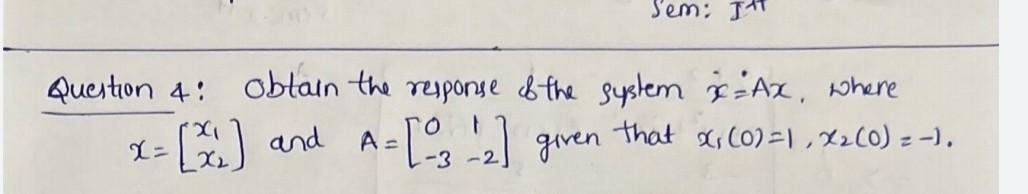 Sem: Ist
Question 4: Obtain the response of the system ẋ = Ax, where
x = [x₁ x₂] and A = [0 1 -3 -2] given that x₁(0)=1, x₂(0) = -1.